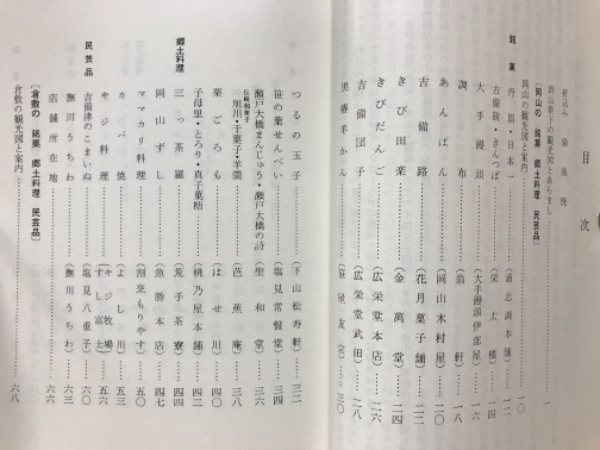 目次
折込み 備前焼
岡山県下の観光図とあらまし……一
〔岡山の 銘菓 郷土料理 民芸品〕
岡山の観光図と案内……一〇
銘菓 丹頂・日本一（満本舗）……一二
吉備餅・きんつば（栄太楼）……一四
大手饅頭（大手饅頭伊部屋）……一六
調布（翁軒）……一八
あんぱん（岡山木村屋）……二〇
吉備路（花月菓子舗）……二二
きび田楽（金萬堂）……二四
きびだんご（広栄堂本店）……二六
吉備団子（広栄堂武田）……二八
黒椿羊かん……三〇
つるの玉子（下山松寿軒）……三二
笹の葉せんべい（塩見常盤堂）……三四
瀬戸大橋まんじゅう・瀬戸大橋の詩（聖和堂）……三六
伝統和菓子
旭川・干菓子・羊羹（芭蕉庵）……三八
栗ごろも（はせ川）……四〇
子母里・とろり・真子菓糖（桃乃屋本舗）……四二
郷土料理 三っ茶羅（荒手茶寮）……四四
岡山ずし（魚勝本店）……四七
ママカリ料理（割烹もりやす）……五〇
カバ焼（よし川）……五三
キジ料理（キジ牧場 すし富士）……五六
民芸品 吉備津のこまいぬ（塩見八重子）……六〇
撫川うちわ（撫川うちわ）……六三
店舗所在地……六六
〔倉敷の 銘菓 郷土料理 民芸品〕
倉敷の観光図と案内……六八